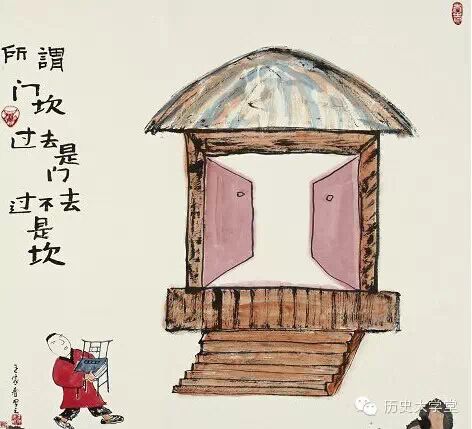 所謂
门坎
过去是门
过不去是坎
历史大学堂